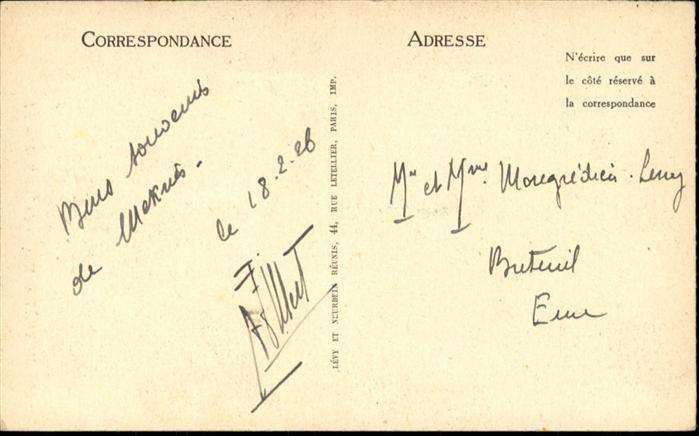 CORRESPONDANCE
ADRESSE
N'écrire que sur
le côté réservé à
la correspondance
Bons souvenirs
de Meknès.
le 18.2.26
LÉVY ET NEURDEIN RÉUNIS, 44, RUE LETELLIER, PARIS, IMP.
Mr et Mme Mongrédien
Breteuil
Eure